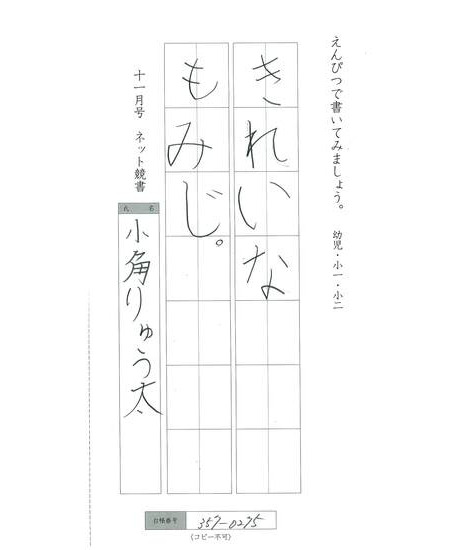 えんぴつで書いてみましょう。 幼児・小一・小二
きれいな
もみじ。
十一月号 ネット競書
氏名
小角りゅう太
お帳番号 357-0275
(コピー不可)